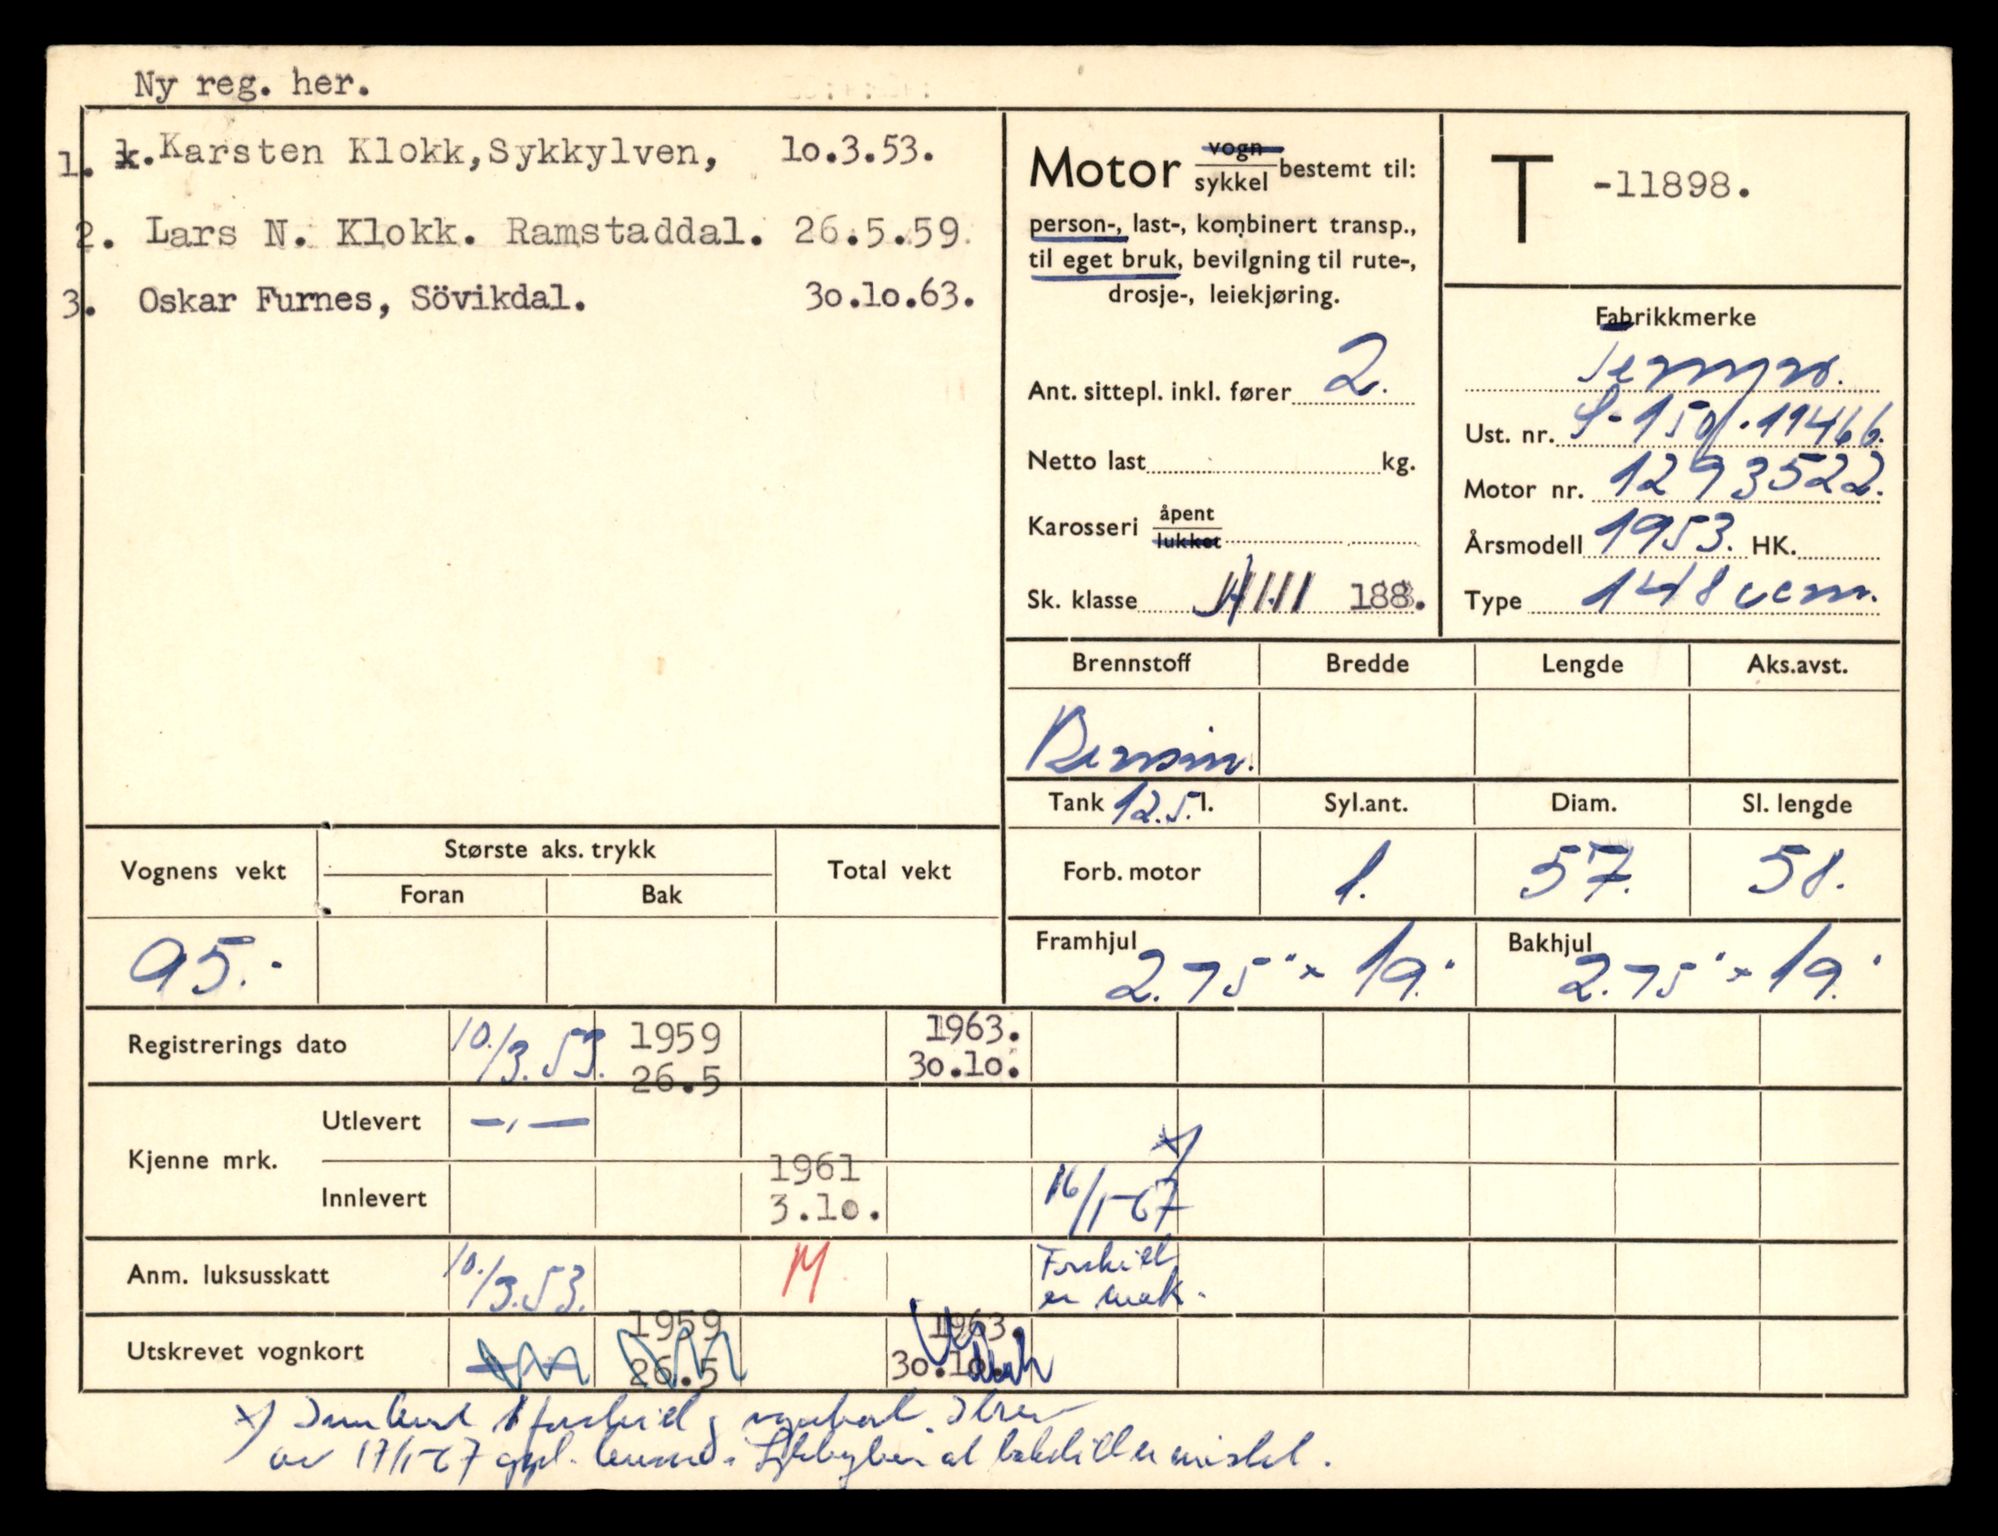 Ny reg. her.
1. k. Karsten Klokk, Sykkylven, 10.3.53.
2. Lars N. Klokk. Ramstaddal. 26.5.59.
3. Oskar Furnes, Sövikdal. 30.10.63.
Motor vogn/sykkel bestemt til:
person-, last-, kombinert transp.,
til eget bruk, bevilgning til rute-,
drosje-, leiekjøring.
Ant. sittepl. inkl. fører 2.
Netto last kg.
Karosseri åpent/lukket
Sk. klasse 188.
T -11898.
Fabrikkmerke
Tempo.
Ust. nr. S-150/.11466.
Motor nr. 1293522.
Årsmodell 1953. HK.
Type 148 ccm.
Brennstoff Bredde Lengde Aks.avst.
Bensin.
Tank 12.5 l. Syl.ant. Diam. Sl. lengde
Forb. motor 1. 57. 58.
Framhjul 2.75" x 19." Bakhjul 2.75" x 19."
Vognens vekt Største aks. trykk Total vekt
Foran Bak
95.-
Registrerings dato 10./3.53. 1959 26.5 1963. 30.10.
Kjenne mrk.
Utlevert —„— x)
Innlevert 1961 3.10. 16/1-67
Anm. luksusskatt 10./3.53. M Forskilt er vrak.
Utskrevet vognkort —„— 1959 26.5 1963. 30.10.
x) Innlevert 1 forskilt og vognkort. Brev
av 17/1-67 lensm. i Sykkylven at bakskilt er mistet.